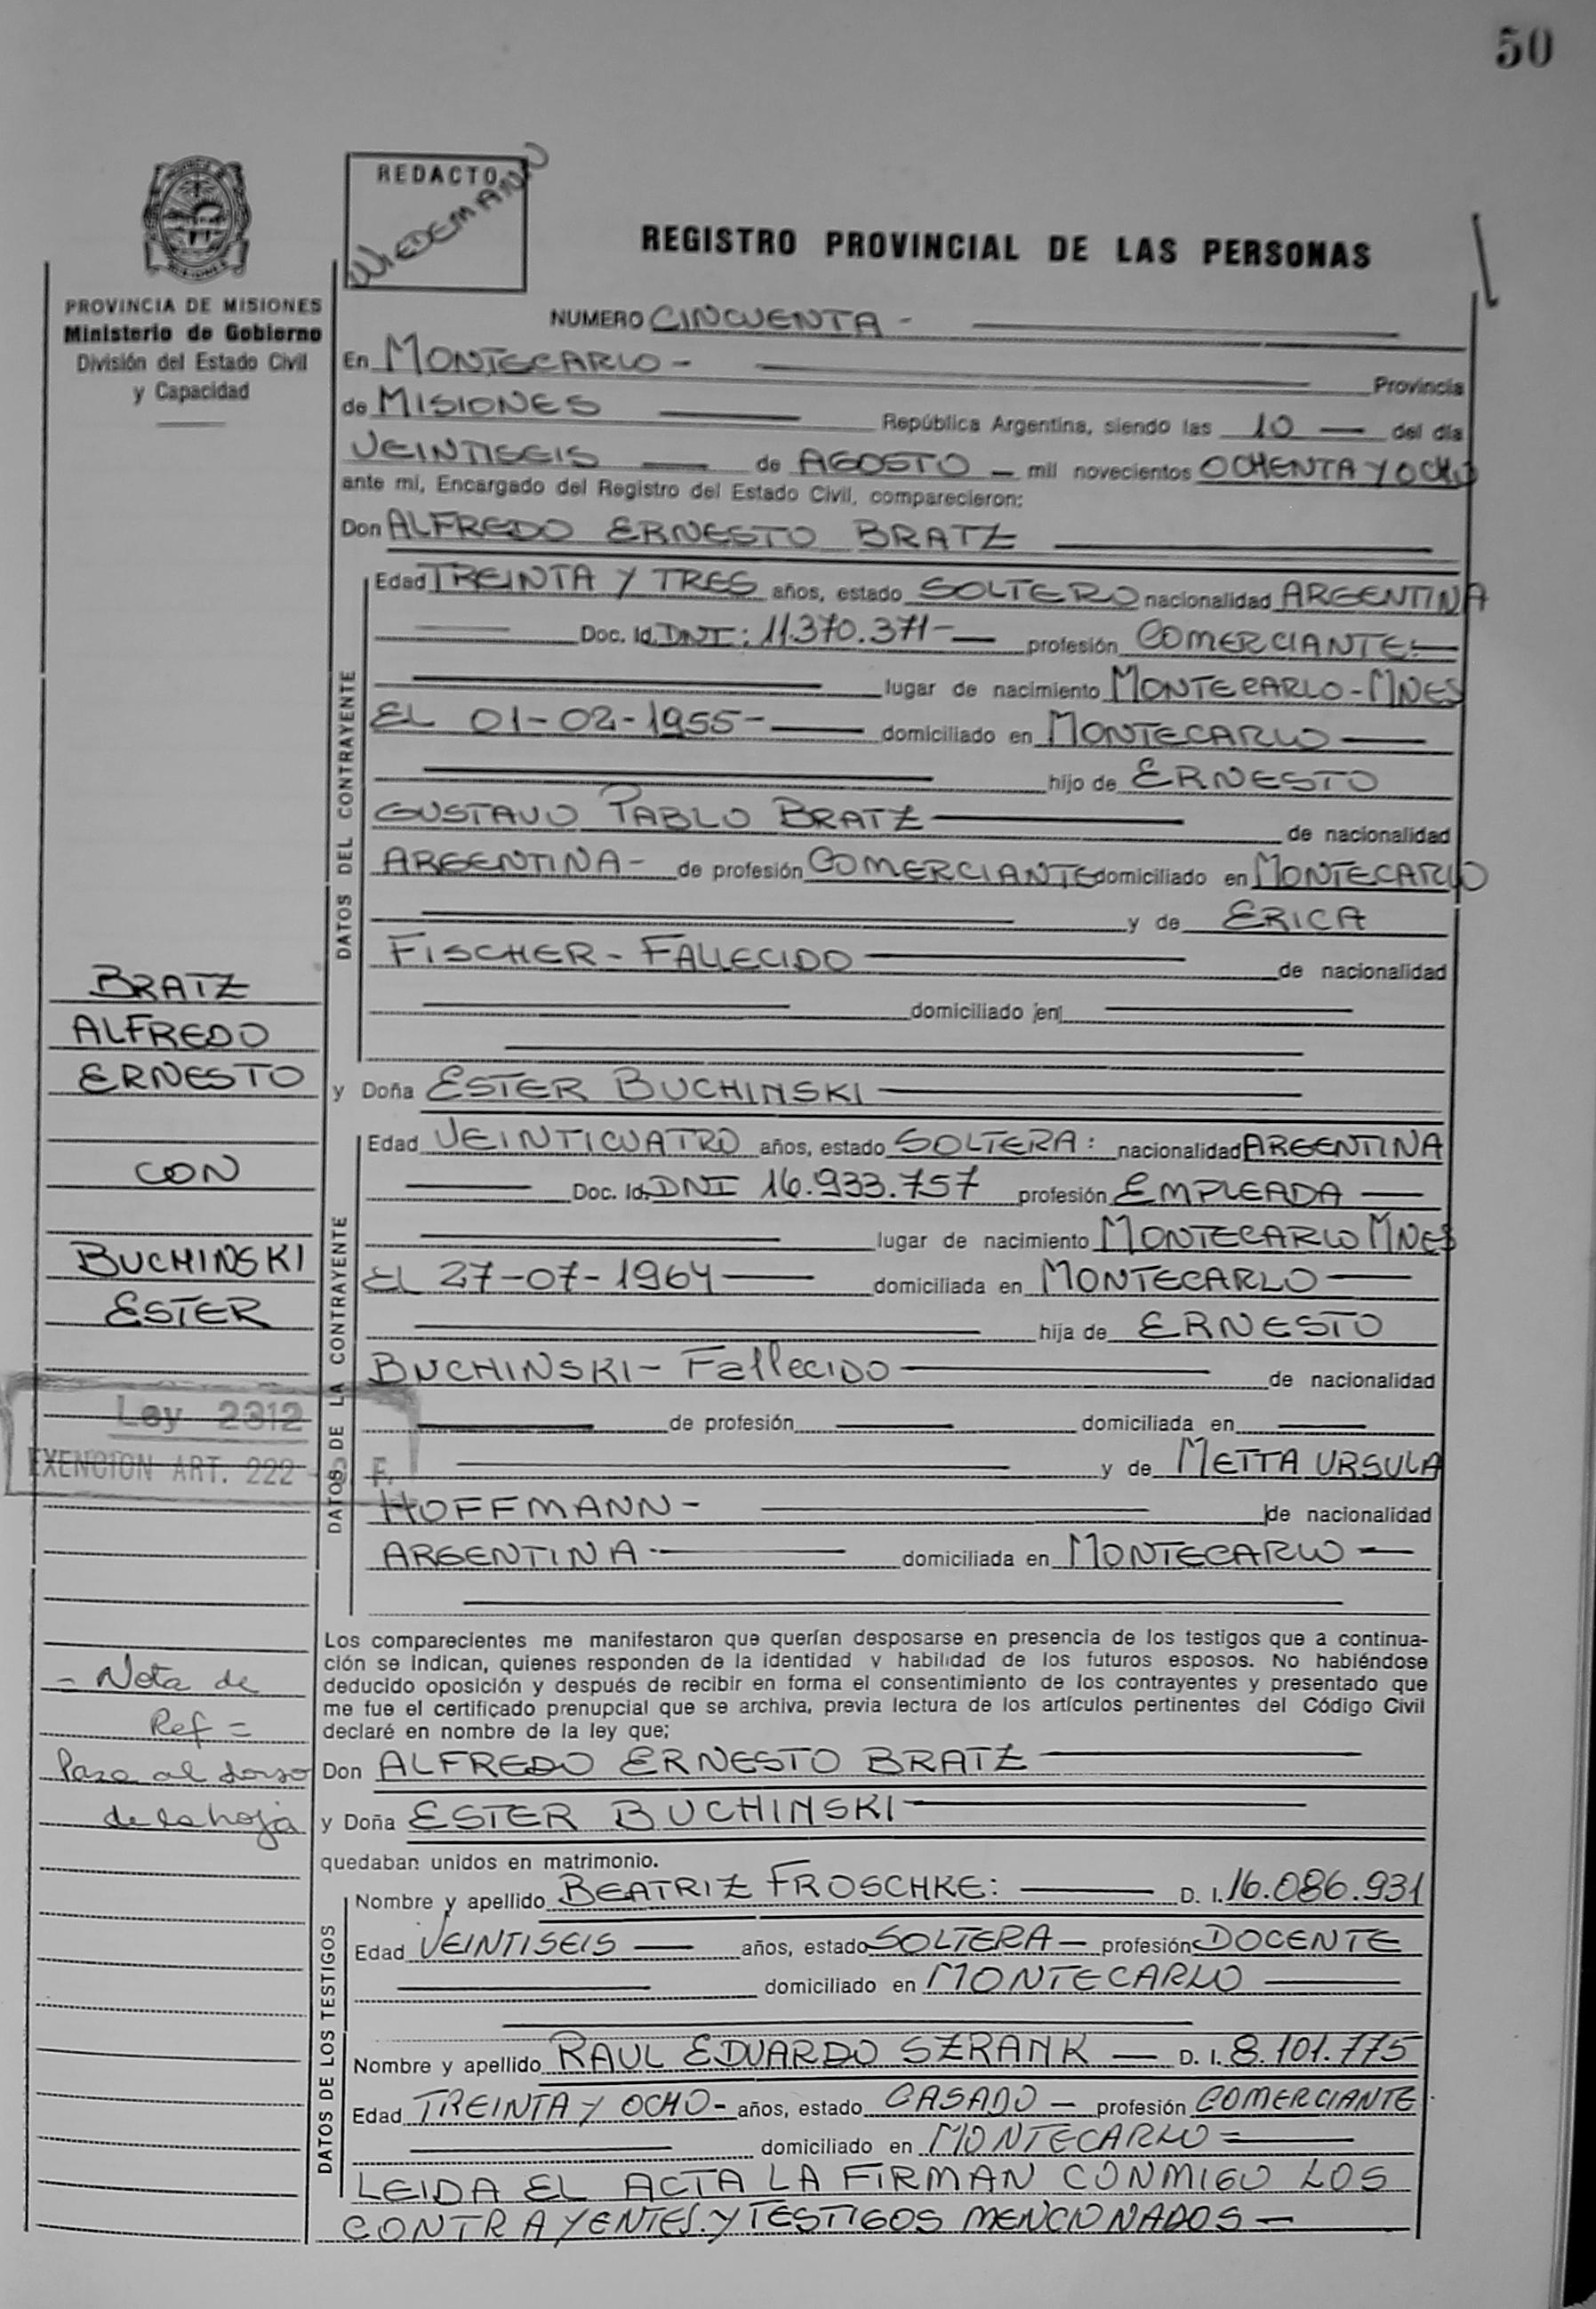 50
REDACTO
WIEDEMANN
REGISTRO PROVINCIAL DE LAS PERSONAS
PROVINCIA DE MISIONES
Ministerio de Gobierno
División del Estado Civil
y Capacidad
NUMERO CINCUENTA -
En MONTECARLO - Provincia
de MISIONES República Argentina, siendo las 10 del día
VEINTISEIS de AGOSTO - mil novecientos OCHENTA Y OCHO
ante mí, Encargado del Registro del Estado Civil, comparecieron:
Don ALFREDO ERNESTO BRATZ
DATOS DEL CONTRAYENTE
Edad TREINTA Y TRES años, estado SOLTERO nacionalidad ARGENTINA
Doc. Id. DNI: 11.370.371- profesión COMERCIANTE:
lugar de nacimiento MONTECARLO-MNES
EL 01-02-1955- domiciliado en MONTECARLO
hijo de ERNESTO
GUSTAVO PABLO BRATZ de nacionalidad
ARGENTINA- de profesión COMERCIANTE domiciliado en MONTECARLO
y de ERICA
FISCHER - FALLECIDO de nacionalidad
domiciliado en
y Doña ESTER BUCHINSKI
DATOS DE LA CONTRAYENTE
Edad VEINTICUATRO años, estado SOLTERA: nacionalidad ARGENTINA
Doc. Id. DNI 16.933.757 profesión EMPLEADA
lugar de nacimiento MONTECARLO MNES
EL 27-07-1964 domiciliada en MONTECARLO
hija de ERNESTO
BUCHINSKI- Fallecido de nacionalidad
de profesión domiciliada en
y de METTA URSULA
HOFFMANN- de nacionalidad
ARGENTINA- domiciliada en MONTECARLO
BRATZ
ALFREDO
ERNESTO
CON
BUCHINSKI
ESTER
Ley 2312
EXENCION ART. 222 F.
- Nota de
Ref =
Pasa al dorso
de la hoja
Los comparecientes me manifestaron que querían desposarse en presencia de los testigos que a continua-
ción se indican, quienes responden de la identidad y habilidad de los futuros esposos. No habiéndose
deducido oposición y después de recibir en forma el consentimiento de los contrayentes y presentado que
me fue el certificado prenupcial que se archiva, previa lectura de los artículos pertinentes del Código Civil
declaré en nombre de la ley que;
Don ALFREDO ERNESTO BRATZ
y Doña ESTER BUCHINSKI
quedaban unidos en matrimonio.
DATOS DE LOS TESTIGOS
Nombre y apellido BEATRIZ FROSCHKE: D. I. 16.086.931
Edad VEINTISEIS años, estado SOLTERA - profesión DOCENTE
domiciliado en MONTECARLO
Nombre y apellido RAUL EDUARDO SZRANK - D. I. 8.101.775
Edad TREINTA Y OCHO- años, estado CASADO - profesión COMERCIANTE
domiciliado en MONTECARLO =
LEIDA EL ACTA LA FIRMAN CONMIGO LOS
CONTRAYENTES. Y TESTIGOS MENCIONADOS -